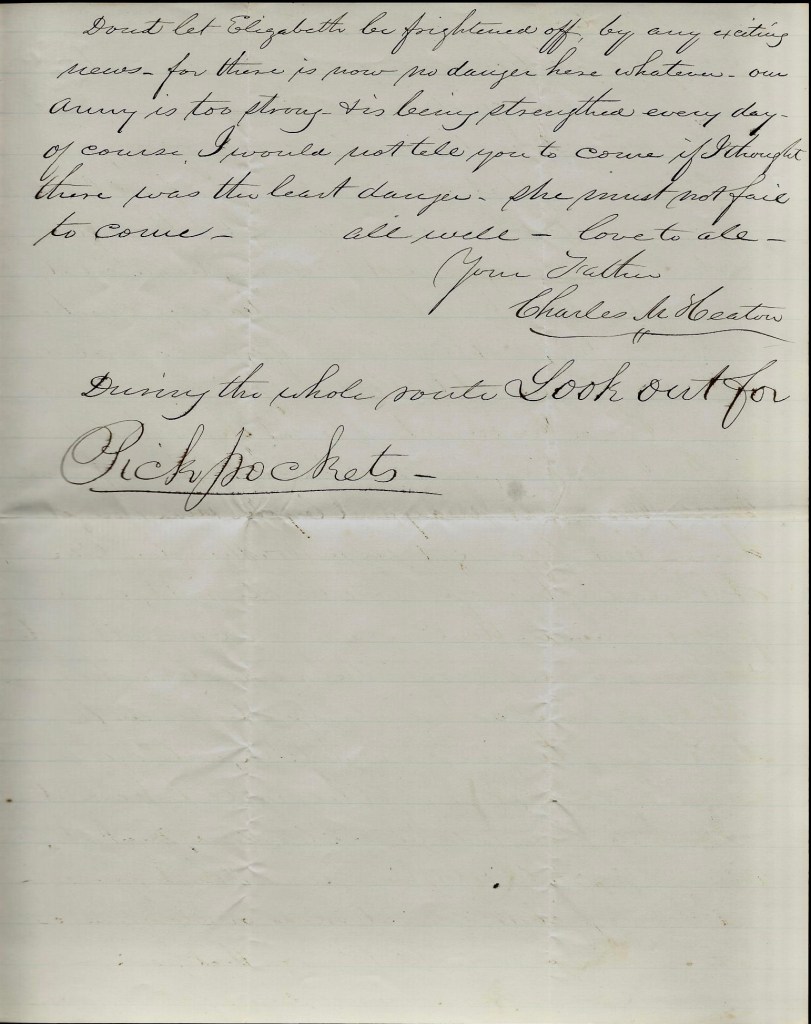 Dont let Elizabeth be frightened off, by any exciting
news - for there is now no danger here whatever - our
Army is too strong - & is being strengthed every day -
of course, I would not tell you to come if I thought
there was the least danger - she must not fail
to come - all well - love to all -
Your Father
Charles M Heaton
During the whole route Look out for
Pick pockets -